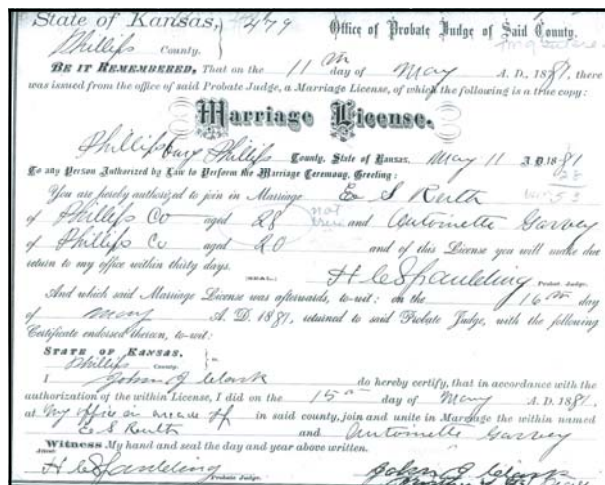 State of Kansas, 479 Office of Probate Judge of Said County.
Phillips County.
BE IT REMEMBERED, That on the 11th day of May A. D., 1881, there
was issued from the office of said Probate Judge, a Marriage License, of which the following is a true copy:
Marriage License.
Phillipsburg Phillips County, State of Kansas. May 11 A D 1881
28
To any Person Authorized by Law to Perform the Marriage Ceremony, Greeting:
53
You are hereby authorized to join in Marriage E S Ruth
of Phillips Co aged 28 not true and Antoinette Garvey
of Phillips Co aged 20 and of this License you will make due
return to my office within thirty days.
(SEAL.) H C Spaulding Probate Judge.
And which said Marriage License was afterwards, to-wit: on the 16th day
of May A. D. 1881, returned to said Probate Judge, with the following
Certificate endorsed thereon, to-wit:
STATE OF KANSAS, ss
Phillips County.
I John J Clark do hereby certify, that in accordance with the
authorization of the within License, I did on the 15th day of May A. D. 1881,
at My office in arcade in said county, join and unite in Marriage the within named
E S Ruth and Antoinette Garvey
Witness My hand and seal the day and year above written.
Attest:
H C Spaulding Probate Judge. John J Clark